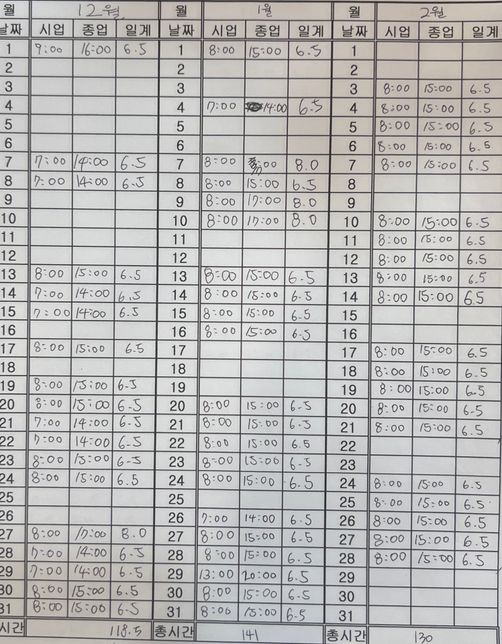 월 12월 월 1월 월 2월
날짜 시업 종업 일계 날짜 시업 종업 일계 날짜 시업 종업 일계
1 9:00 16:00 6.5 1 8:00 15:00 6.5 1
2 2 2
3 3 3 8:00 15:00 6.5
4 4 7:00 14:00 6.5 4 8:00 15:00 6.5
5 5 5 8:00 15:00 6.5
6 6 6 8:00 15:00 6.5
7 7:00 14:00 6.5 7 8:00 8.0 7 8:00 15:00 6.5
8 7:00 14:00 6.5 8 8:00 15:00 6.5 8
9 9 8:00 17:00 8.0 9
10 10 8:00 17:00 8.0 10 8:00 15:00 6.5
11 11 11 8:00 15:00 6.5
12 12 12 8:00 15:00 6.5
13 8:00 15:00 6.5 13 8:00 15:00 6.5 13 8:00 15:00 6.5
14 7:00 14:00 6.5 14 8:00 15:00 6.5 14 8:00 15:00 6.5
15 7:00 14:00 6.5 15 8:00 15:00 6.5 15
16 16 8:00 15:00 6.5 16
17 8:00 15:00 6.5 17 17 8:00 15:00 6.5
18 18 18 8:00 15:00 6.5
19 8:00 15:00 6.5 19 19 8:00 15:00 6.5
20 8:00 15:00 6.5 20 8:00 15:00 6.5 20 8:00 15:00 6.5
21 7:00 14:00 6.5 21 8:00 15:00 6.5 21 8:00 15:00 6.5
22 7:00 14:00 6.5 22 8:00 15:00 6.5 22
23 8:00 15:00 6.5 23 8:00 15:00 6.5 23
24 8:00 15:00 6.5 24 8:00 15:00 6.5 24 8:00 15:00 6.5
25 25 25 8:00 15:00 6.5
26 26 7:00 14:00 6.5 26 8:00 15:00 6.5
27 8:00 17:00 8.0 27 8:00 15:00 6.5 27 8:00 15:00 6.5
28 7:00 14:00 6.5 28 8:00 15:00 6.5 28 8:00 15:00 6.5
29 7:00 14:00 6.5 29 13:00 20:00 6.5 29
30 8:00 15:00 6.5 30 8:00 15:00 6.5 30
31 8:00 15:00 6.5 31 8:00 15:00 6.5 31
시간 118.5 총시간 141 총시간 130